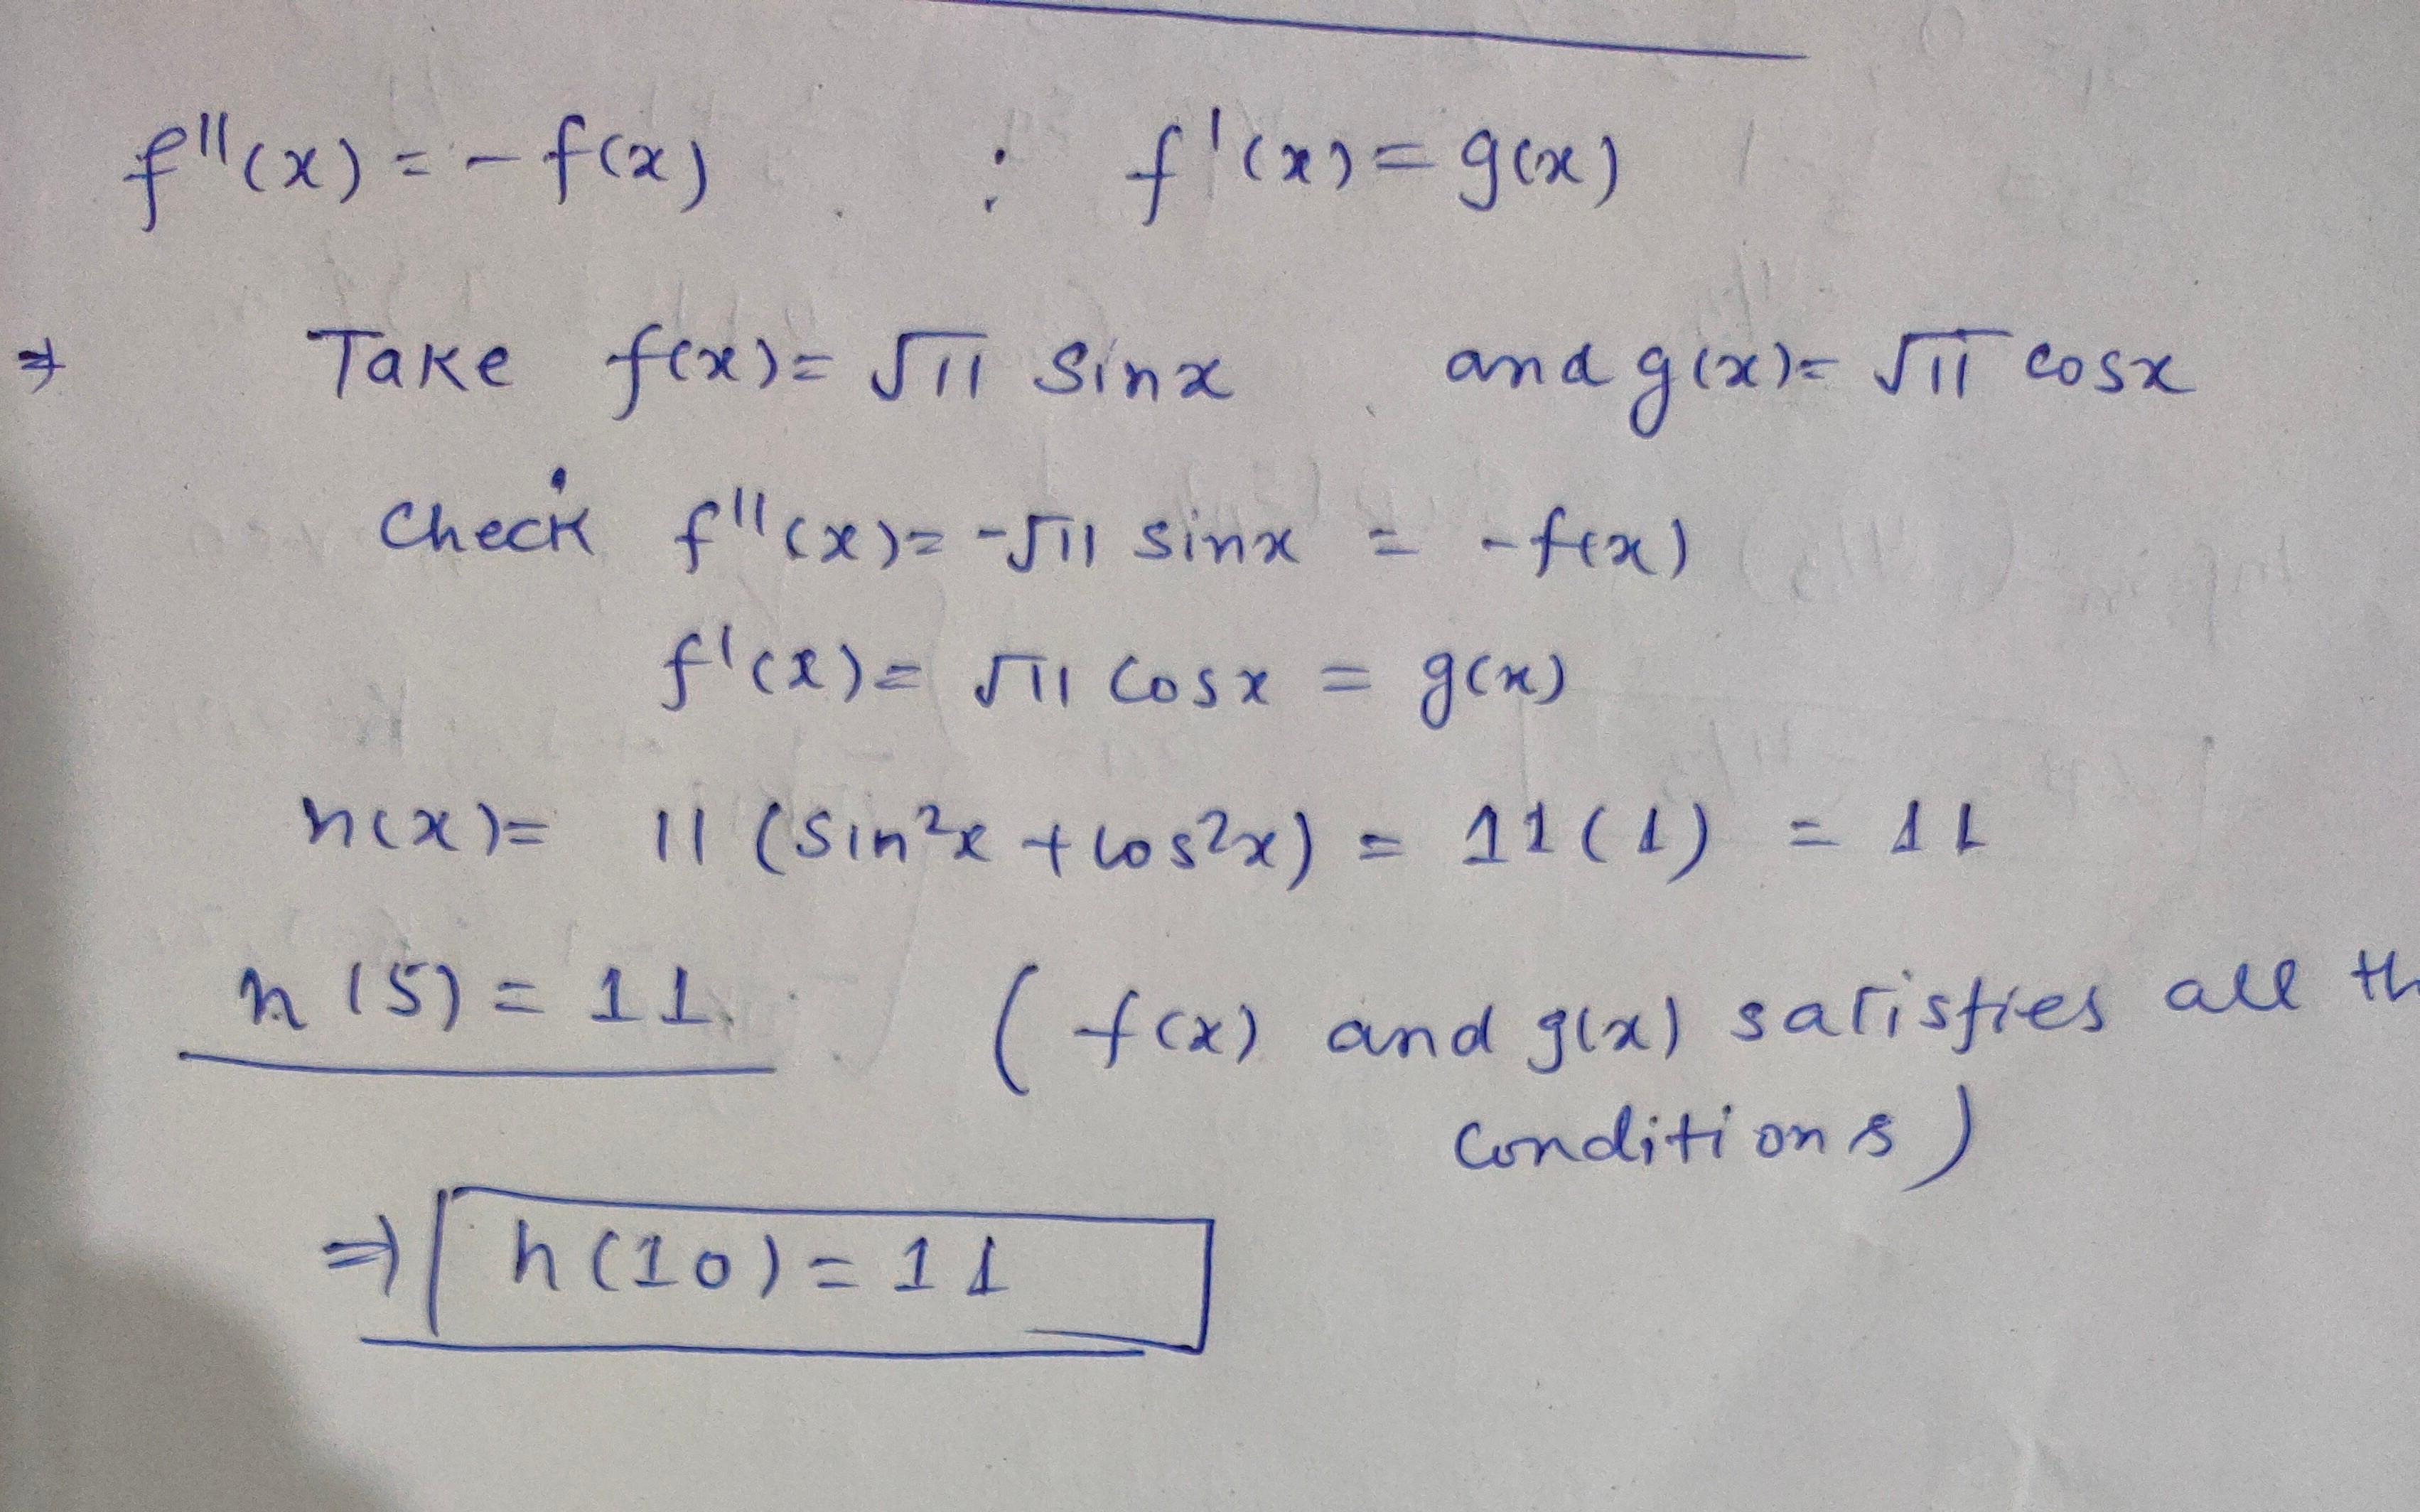 f''(x) = - f(x) : f'(x) = g(x)
⇒ Take f(x) = √11 sinx and g(x) = √11 cosx
Check f''(x) = -√11 sinx = -f(x)
f'(x) = √11 cosx = g(x)
h(x) = 11 (sin²x + cos²x) = 11(1) = 11
h(5) = 11. ( f(x) and g(x) satisfies all th
conditions )
⇒ h(10) = 11